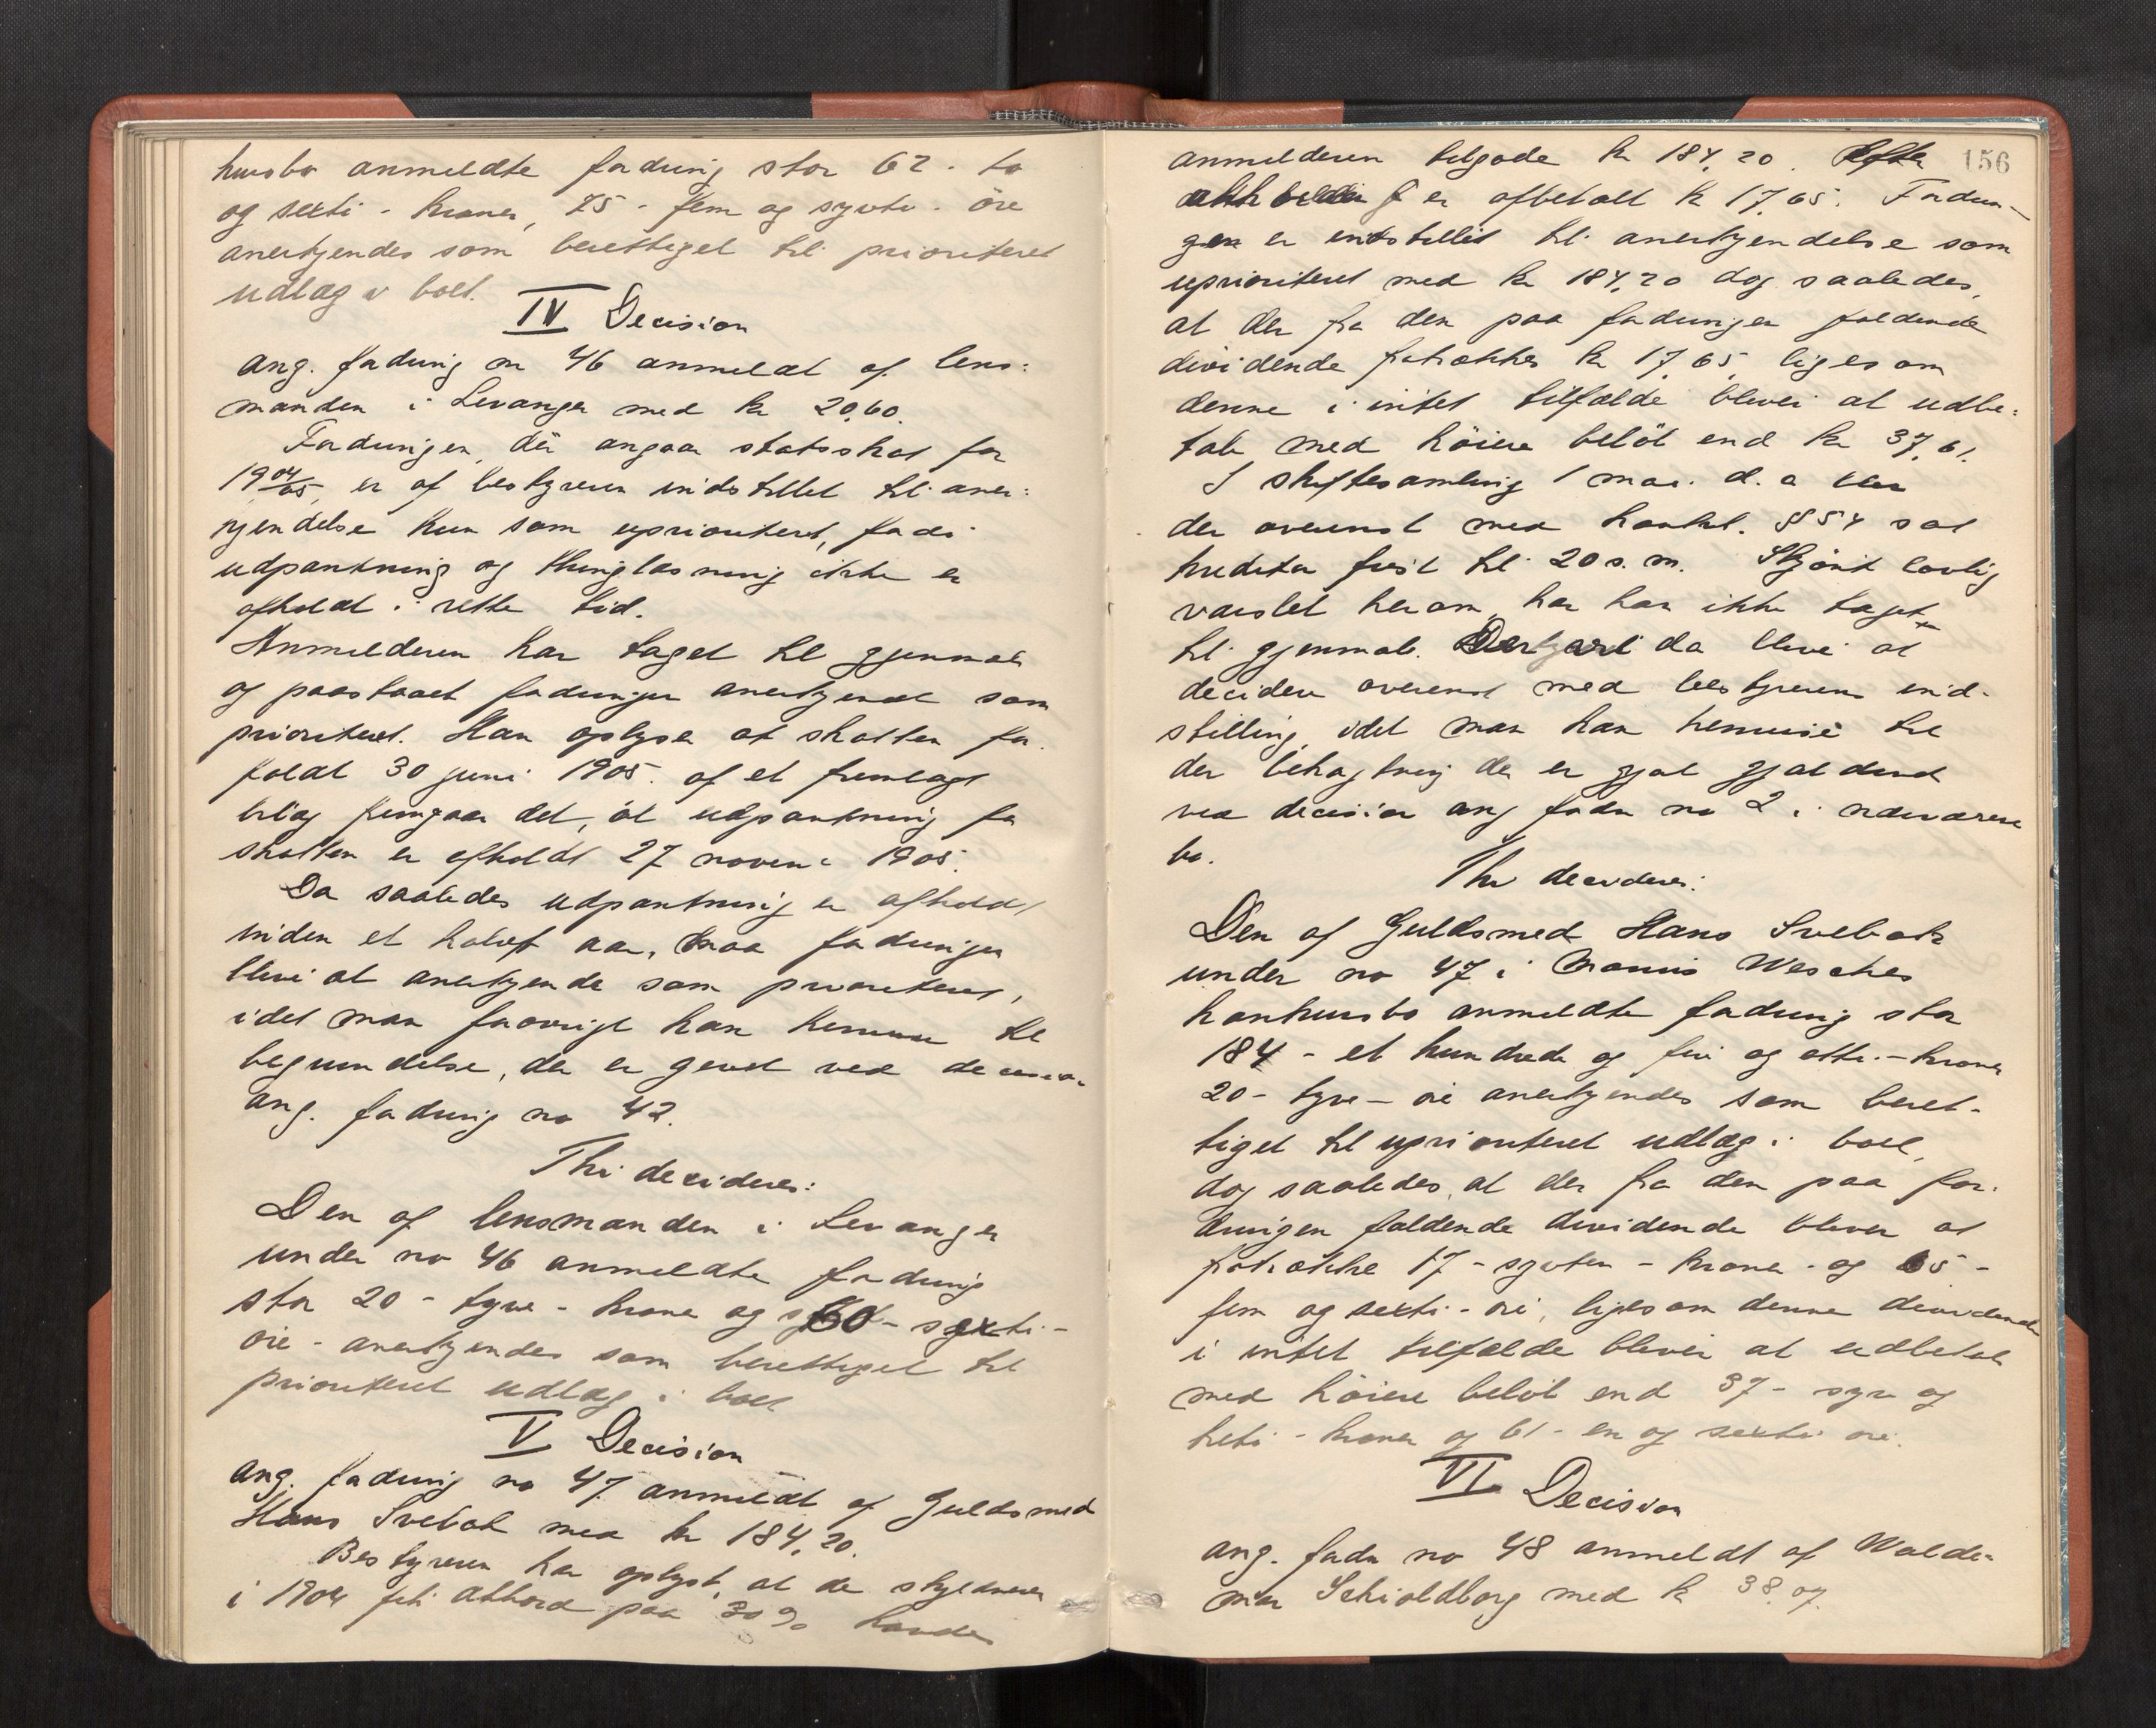 kursbo anmeldte fordring stor 62 - to
og sexti - kroner, 75 - fem og sytti - øre
anerkjendes som berettiget til prioriteret
udlæg i boet.
IV Decision
ang. fordring no 46 anmeldt af lens:
manden i Levanger med kr 20,60.
Fordringen, der angaar statsskat for
1904/05, er af bestyreren indstillet til aner:
kjendelse kun som uprioriteret, fordi
udpantning og thinglæsning ikke er
afholdt i rette tid.
Anmelderen har taget til gjenmæle
og paastaaet fordringen anerkjendt som
prioriteret. Han oplyser at skatten for-
faldt 30 juni 1905. Af et fremlagt
bilag fremgaar det, at udpantning for
skatten er afholdt 27 novembr 1905.
Da saaledes udpantning er afholdt
inden et halvt aar, maa fordringen
blive at anerkjende som prioriteret,
idet man forøvrigt kan henvise til
begrundelse, der er givet ved decision
ang. fordring no 42.
Thi decideres:
Den af lensmanden i Levanger
under no 46 anmeldte fordring
stor 20 - tyve - kroner og 60 - sexti -
øre - anerkjendes som berettiget til
prioriteret udlæg i boet
V Decision
ang. fordring no 47 anmeldt af Guldsmed
Hans Svebak med kr 184,20.
Bestyreren har oplyst, at da skyldneren
i 1904 fik akkord paa 30 % havde
156
anmelderen tilgode kr 184,20. Efter
akkorden er afbetalt kr 17,65. Fordrin-
gen er indstillet til anerkjendelse som
uprioriteret med kr 184,20 dog saaledes,
at der fra den paa fordringen faldende
dividende fratrækkes kr 17,65, ligesom
denne i intet tilfælde bliver at udbe:
tale med høiere beløb end kr 37,61.
I skiftesamling 1 mai d. a blev
der overenst med konkl. § 54 sat
kreditor frist til 20 s. m. Skjønt lovlig
varslet herom, har han ikke taget
til gjenmæle. Der da blive at
decidere overenst med bestyrerens ind-
stilling, idet man kan henvise til
den betragtning der er gjort gjældende
ved decision ang fordr no 2 i nærværende
bo.
Thi decideres:
Den af Guldsmed Hans Svebak
under no 47 i Wesches
konkursbo anmeldte fordring stor
184 - et hundrede og fire og otti - kroner
20 - tyve - øre anerkjendes som beret-
tiget til uprioriteret udlæg i boet,
dog saaledes, at der fra den paa for-
dringen faldende dividende bliver at
fratrække 17 - sytten - kroner - og 65 -
fem og sexti - øre, ligesom denne dividende
i intet tilfælde bliver at udbetale
med høiere beløb end 37 - syv og
treti - kroner og 61 - en og sexti øre.
VI Decision
ang. fordr no 48 anmeldt af Walde-
mar Schioldborg med kr 38,07.